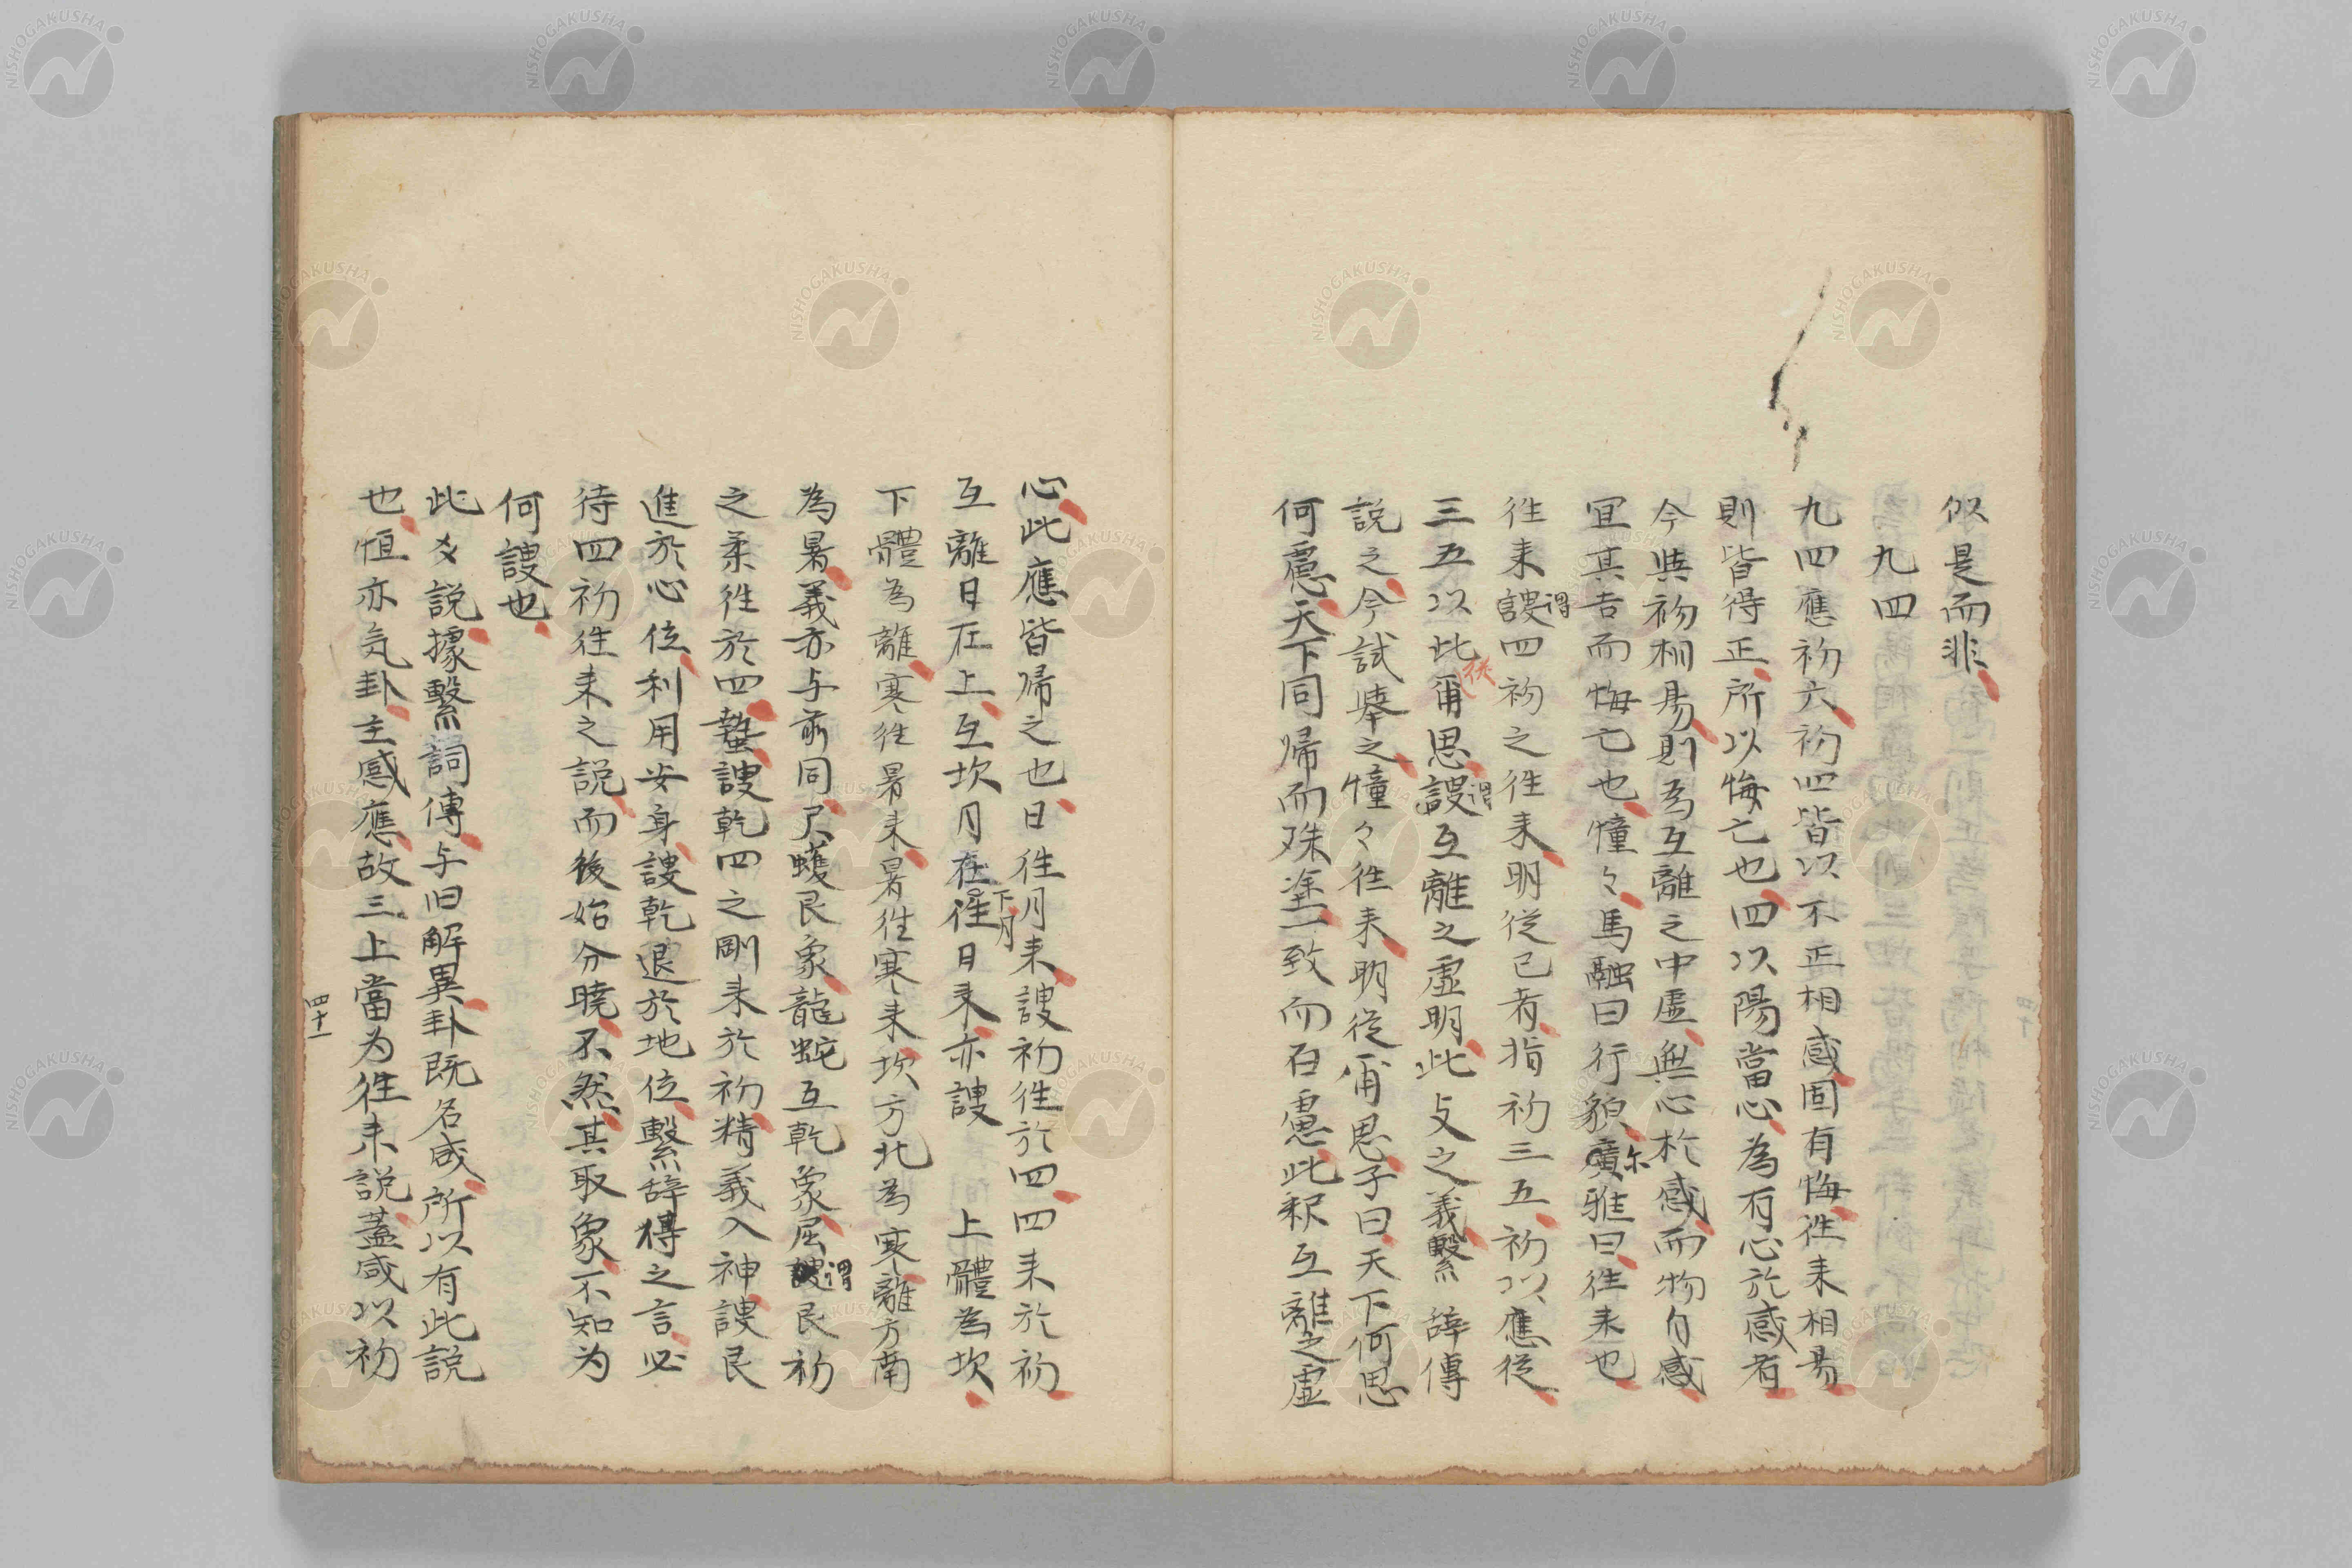 似是而非
九四
九四應初六初四皆以不正相感固有悔往来相易
則皆得正所以悔亡也四以陽當心為有心於感者
今與初相易則為互離之中虚無心於感而物自感
宜其吉而悔亡也憧々馬融曰行貌廣雅曰往来也
尓
往来謖四初之往来明従已者指初三五初以應従
谓
三五以此爾思謖互離之虚明此爻之義繫辞傳
従
谓
説之今試舉之憧々往来明従爾思子曰天下何思
何慮天下同帰而殊塗一致而百慮此釈互離之虚
心此應皆帰之也日往月来謖初往於四四来於初
互離日在上互坎月在往日来亦謖 上體為坎
下月
下體為離寒往暑来暑往寒来坎方北為寒離方南
為暑義亦与前同尺蠖艮象龍蛇互乾象屈謖艮初
谓
之柔往於四蟄謖乾四之剛来於初精義入神謖艮
進於心位利用安身謖乾退於地位繫辞得之言必
待四初往来之説而後始分曉不然其取象不知为
何謖也
此爻説據繫詞傳与旧解異卦既名咸所以有此説
也恒亦気卦主感應故三上當为往来説蓋咸以初
四十一
NISHOGAKUSHA